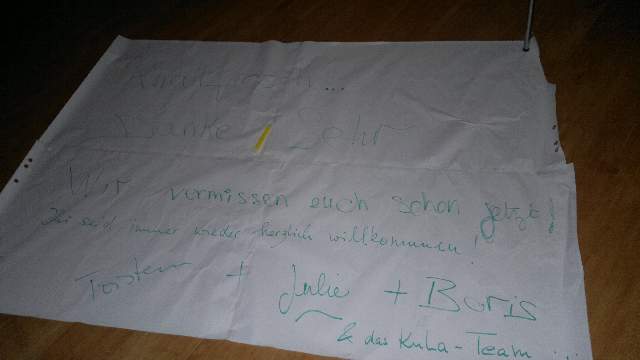 Danke Sehr
Wir vermissen euch schon jetzt!
Ihr seid immer wieder herzlich willkommen!
Torsten + Julie + Boris
& das KuHa-Team ...